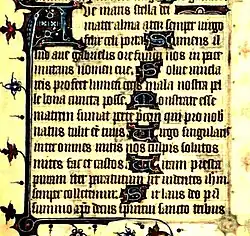 Ue maris stella dei
mater alma atq; semper uirgo
felix celi porta Sumens il
lud aue gabrielis ore funda nos in pace
mutans nomen eue Solue uincla
reis profer lumen cecis mala nostra pel
le bona cuncta posce Monstrate esse
matrem sumat per te precem qui pro nob
natus tulit ee tuus Virgo singularis
inter omnes mitis nos culpis solutos
mites fac et castos Vitam presta
puram iter para tutum ut uidentes ihm
semper colletemur Sit laus deo pri
summo xpo decus spiritui sancto tribus